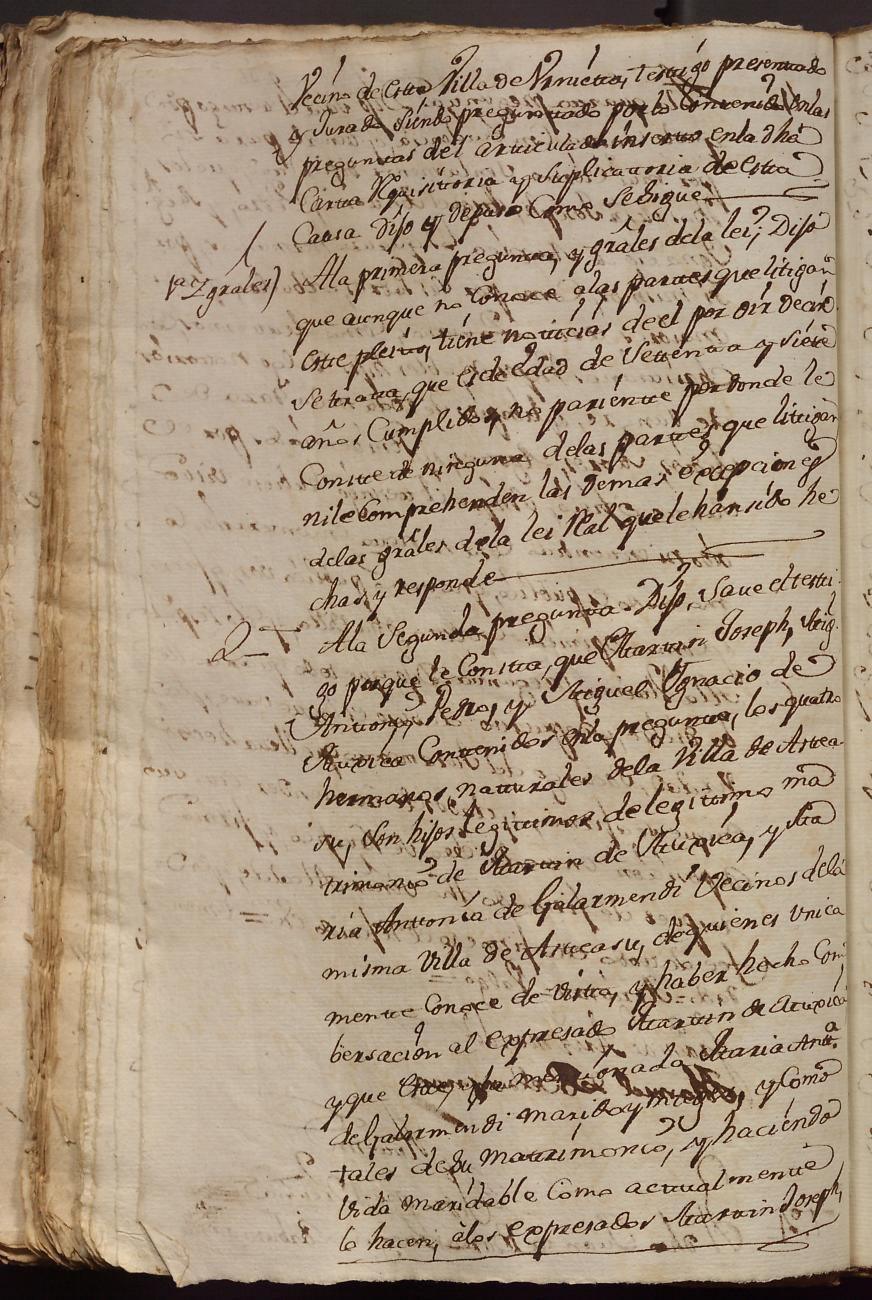 Vecino de esta Villa de Urnieta, testigo presentado
y Jurado siendo preguntado por lo Contenido en las
preguntas del articulado inserto en la dha
Carta Requisitoria y suplicatoria de esta
Causa Dijo y depuso Como se sigue
1ª Z grales) A la primera pregunta, y grâles de la lei, Dijo
que aunque no Conoce a las partes que litigan
este pleito, tiene noticias de el por oir decir
se trata, que es de edad de Settenta y siete
años Cumplidos, no pariente por donde le
Conste de ninguna de las partes que litigan
ni le Comprehenden las demas excepciones
de las grâles de la lei Rl que le han sido he
chas, y responde
2 A la Segunda pregunta Dijo, Save el testi
go porque le Consta, que Martin Joseph, Mig.
Antonio, Pedro, y Miguel Ignacio de
Contenidos en la pregunta, los quatro
hermanos, naturales de la Villa de Astea
su, son hijos legitimos de legitimo ma
trimonio de Martin de y Ma
ria Antonia de Galarmendi Vecinos de la
misma Villa de Asteasu, de quienes unica
mente Conoce de vista, y haber hecho Con
bersación al expresado Martin de
y que este, y la mencionada Maria Antta.
de Galarmendi marido y muger, y Como
tales de su matrimonio, y haciendo
Vida maridable Como actualmente
lo hacen, a los expresados Martin Joseph,